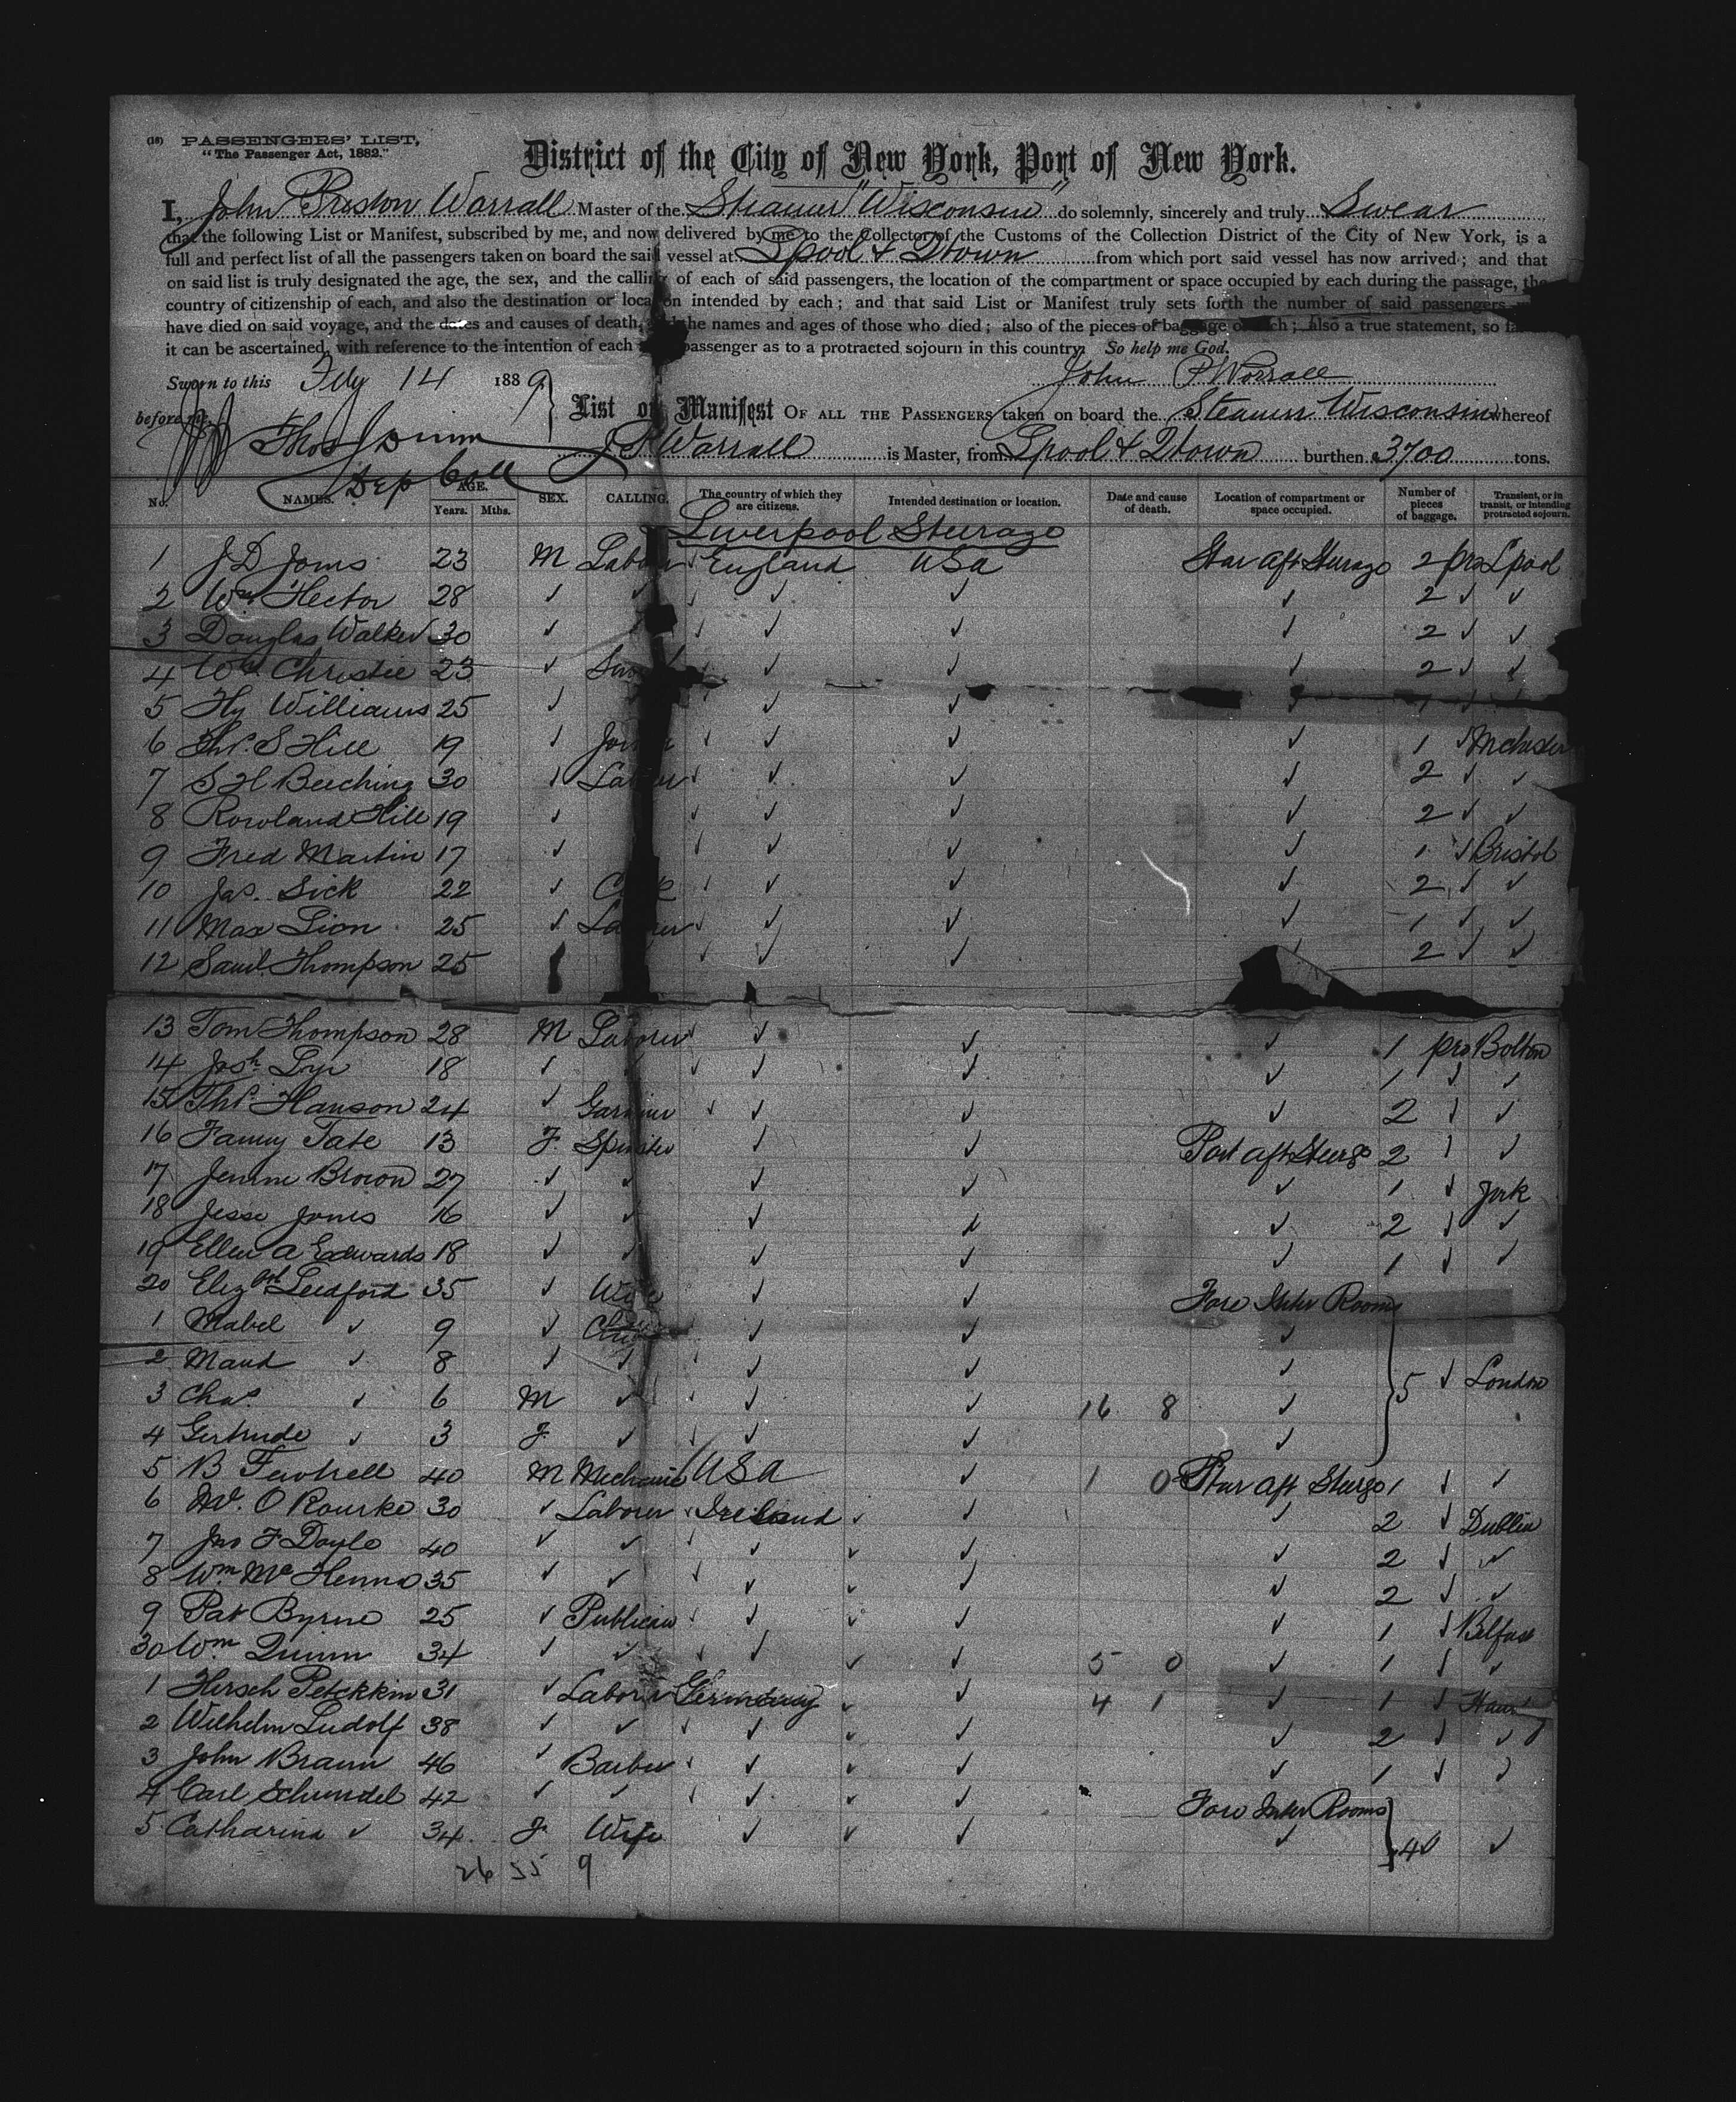 (18) PASSENGERS' LIST,
"The Passenger Act, 1882."
District of the City of New York, Port of New York.
I, John Preston Worrall Master of the Steamer "Wisconsin" do solemnly, sincerely and truly Swear
that the following List or Manifest, subscribed by me, and now delivered by me to the Collector of the Customs of the Collection District of the City of New York, is a
full and perfect list of all the passengers taken on board the said vessel at Lpool & Qtown from which port said vessel has now arrived; and that
on said list is truly designated the age, the sex, and the calling of each of said passengers, the location of the compartment or space occupied by each during the passage, the
country of citizenship of each, and also the destination or location intended by each; and that said List or Manifest truly sets forth the number of said passengers
have died on said voyage, and the dates and causes of death, and the names and ages of those who died; also of the pieces of baggage of each; also a true statement, so far
it can be ascertained, with reference to the intention of each passenger as to a protracted sojourn in this country. So help me God.
Sworn to this Feby 14 1889
John P Worrall
before me
Thos Dunn
Dep Coll
List or Manifest OF ALL THE PASSENGERS taken on board the Steamer Wisconsin whereof
J P Worrall is Master, from Lpool & Qtown burthen 3700 tons.
No. NAMES. AGE. Years. Mths. SEX. CALLING. The country of which they are citizens. Intended destination or location. Date and cause of death. Location of compartment or space occupied. Number of pieces of baggage. Transient, or in transit, or intending protracted sojourn.
Liverpool Steerage
1 J D Jones 23 M Laborer England USA Star aft Steerage 2 pro Lpool
2 Wm Hector 28 ✓ ✓ ✓ ✓ ✓ 2 ✓ ✓
3 Douglas Walker 30 ✓ ✓ ✓ ✓ ✓ 2 ✓ ✓
4 Wm Christie 23 ✓ ✓ ✓ ✓ 2 ✓ ✓
5 Hy Williams 25 ✓ ✓ ✓ ✓ 1 ✓ ✓
6 Thos. S Hill 19 ✓ Joiner ✓ ✓ ✓ 1 ✓ Mchester
7 S H Beeching 30 ✓ Laborer ✓ ✓ ✓ 2 ✓ ✓
8 Rowland Hill 19 ✓ ✓ ✓ ✓ 2 ✓ ✓
9 Fred Martin 17 ✓ ✓ ✓ ✓ 1 ✓ Bristol
10 Jas. Sick 22 ✓ ✓ ✓ ✓ 2 ✓ ✓
11 Max Lion 25 ✓ Laborer ✓ ✓ ✓ 1 ✓ ✓
12 Saml. Thompson 25 ✓ ✓ 2 ✓ ✓
13 Tom Thompson 28 M Laborer ✓ ✓ ✓ 1 pro Bolton
14 Josh Lye 18 ✓ ✓ ✓ ✓ 1 ✓ ✓
15 Thos. Hanson 24 ✓ Gardiner ✓ ✓ ✓ 2 ✓ ✓
16 Fanny Tate 13 F Spinster ✓ ✓ Port aft Steerge 2 ✓ ✓
17 Jennie Brown 27 ✓ ✓ ✓ ✓ ✓ 1 ✓ York
18 Jesse Jones 16 ✓ ✓ ✓ ✓ ✓ 2 ✓ ✓
19 Ellen A Edwards 18 ✓ ✓ ✓ ✓ ✓ 1 ✓ ✓
20 Elizbth Leedford 35 ✓ Wife ✓ ✓ Fore Inter Rooms
1 Mabel ✓ 9 ✓ Child ✓ ✓ ✓
2 Maud ✓ 8 ✓ ✓ ✓ ✓ ✓ 5 ✓ London
3 Chas. ✓ 6 M ✓ ✓ ✓ 16 8 ✓
4 Gertrude ✓ 3 F ✓ ✓ ✓ ✓
5 B 40 M Mechanic USA ✓ 1 0 Star aft Steerge 1 ✓ ✓
6 O Rourke 30 ✓ Laborer Ireland ✓ ✓ 2 ✓ Dublin
7 Jno F Doyle 40 ✓ ✓ ✓ ✓ ✓ 2 ✓ ✓
8 Wm. McKenna 35 ✓ ✓ ✓ ✓ ✓ 2 ✓ ✓
9 Pat Byrne 25 ✓ Publican ✓ ✓ ✓ 1 ✓ Belfast
30 Wm Quinn 34 ✓ ✓ ✓ ✓ 5 0 ✓ 1 ✓ ✓
1 Hersch 31 ✓ Laborer Germany ✓ 4 1 ✓ 1 ✓
2 Wilhelm Ludolf 38 ✓ ✓ ✓ ✓ ✓ 2 ✓ ✓
3 John Braun 46 ✓ Barber ✓ ✓ ✓ 1 ✓ ✓
4 Carl Schundel 42 ✓ ✓ ✓ ✓ Fore Inter Rooms
5 Catharina ✓ 34 F Wife ✓ ✓ ✓ 4 ✓ ✓
26 55 9